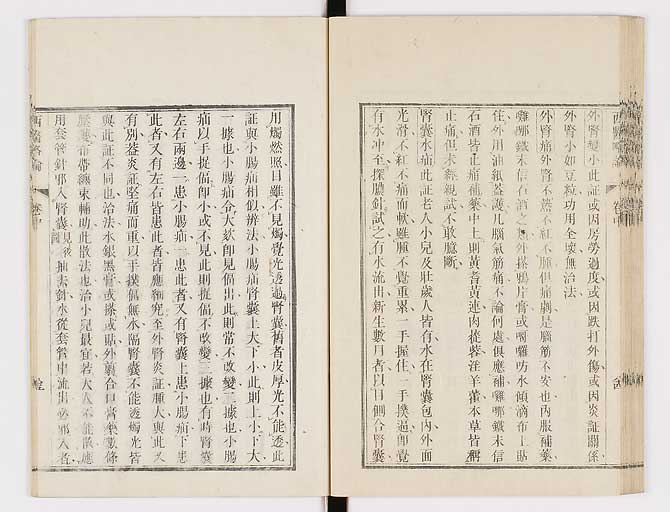 外腎變小此証或因房勞過度或因跌打外傷或因炎証關係
外腎小如豆粒功用全壞無治法
外腎痛外腎不熱不紅不腫但痛劇是腦筋不安也內服補藥
雞哪鐵末信石酒之類外搽鴉片膏或
水傾滴布上貼
住外用油紙蓋護凡腦氣筋痛不論何處俱應補雞哪鐵末信
石酒皆止痛補藥中土則黃芪黃連肉蓯蓉淫羊藿本草皆稱
止痛但未經親試不敢臆斷
腎囊水疝此証老人小兒及壯歲人皆有水在腎囊包內外面
光滑不紅不痛而軟雖腫不覺重累一手握住一手撲逼卽覺
有水冲至探膿針試之有水流出新生數月者以日側合腎囊
用燭燃照目雖不見燭覺光透過腎囊舊者皮厚光不能透此
証與小腸疝相似辨法小腸疝腎囊上大下小此則上小下大
一據也小腸疝令大欬卽見傴出此則常不改變二據也小腸
疝以手捉傴卽小或不見此則捉傴不改變三據也有時腎囊
左右兩邊一患小腸疝一患此者又有腎囊上患小腸疝下患
此者又有左右皆患此者皆應細究至外腎炎証腫大與此又
有別蓋炎証堅痛而重以手捉傴無水隔腎囊不能透燭光皆
與此証不同也治法水銀黑膏或搽或貼外裹合
膏藥數條
布帶纏束輔助此散法也治小兒最宜若大人不能散應
用套管針刺入腎囊見後抽去針水從套管中流出必刺入者
西醫略論
卷中
西醫略論
卷中